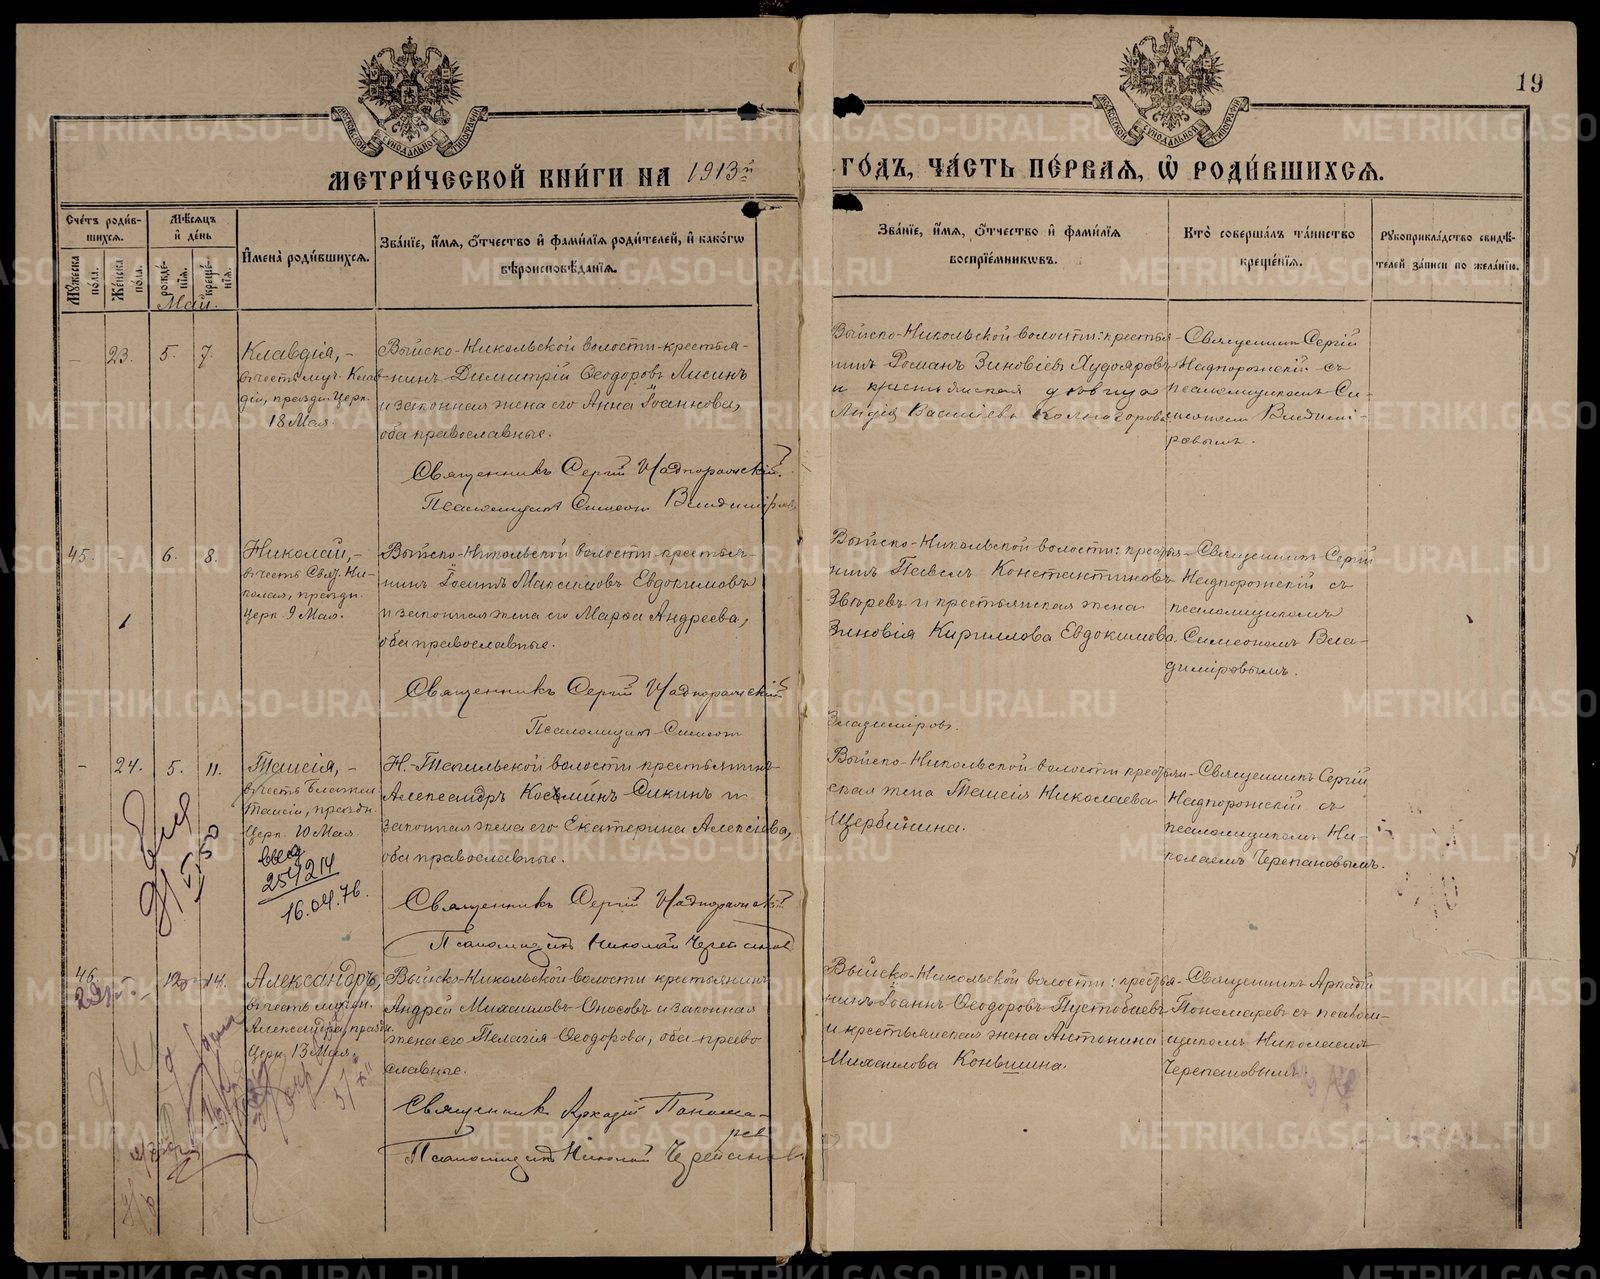 19
МОСКОВСКОЙ СѴНОДАЛЬНОЙ ТИПОГРАФІИ
МОСКОВСКОЙ СѴНОДАЛЬНОЙ ТИПОГРАФІИ
МЕТРИ́ЧЕСКОЙ КНИ́ГИ НА 1913й
ГО́ДЪ, ЧА́СТЬ ПЕ́РВАѦ, Ѡ҆ РОДИ́ВШИХСѦ.
Сче́тъ роди́в-
шихсѧ.
Мꙋ́жеска по́ла.
Же́нска по́ла.
Мѣ́сѧцъ
и҆ де́нь
рожде́нїѧ.
креще́нїѧ.
И҆мена̀ роди́вшихсѧ.
Зва́нїе, и҆́мѧ, ѻ҆́тчество и҆ фами́лїѧ роди́телей, и҆ како́гѡ
вѣроисповѣ́данїѧ.
Зва́нїе, и҆́мѧ, ѻ҆́тчество и҆ фами́лїѧ
воспрїе́мникѡвъ.
Кто̀ соверша́лъ та́инство
креще́нїѧ.
Рꙋкоприкла́дство свидѣ́-
телей за́писи по жела́нїю.
Май.
- 23. 5. 7.
Клавдія, -
въ честь муч. Клав-
діи, праздн. Церк.
18 Мая.
Выйско-Никольской волости крестья-
нинъ Димитрій Ѳеодоровъ Лисинъ
и законная жена его Анна Іоаннова,
оба православные.
Священникъ Сергій Надпорожскій.
Псаломщикъ Симеонъ Владиміровъ
Выйско-Никольской волости: крестья-
нинъ Романъ Зиновіевъ Худояровъ
и крестьянская дѣвица
Лидія Васильева
Священникъ Сергій
Надпорожскій съ
псаломщикомъ Си-
меономъ Владимі-
ровымъ.
45. - 6. 8.
Николай, -
въ честь Свят. Ни-
колая, праздн.
Церк. 9 Мая.
Выйско-Никольской волости крестья-
нинъ Іоаннъ Максимовъ Евдокимовъ
и законная жена его Марѳа Андреева,
оба православные.
Священникъ Сергій Надпорожскій
Псаломщикъ Симеонъ
Владиміровъ.
Выйско-Никольской волости: крестья-
нинъ Павелъ Константиновъ
Звѣревъ и крестьянская жена
Зиновія Кириллова Евдокимова.
Священникъ Сергій
Надпорожскій съ
псаломщикомъ
Симеономъ Вла-
диміровымъ.
- 24. 5. 11.
Таисія, -
въ честь блажен.
Таисіи, праздн.
Церк. 10 Мая
254214
16.04.76.
Н.-Тагильской волости крестьянинъ
Александръ Косминъ Сикинъ и
законная жена его Екатерина Алексіева,
оба православные.
Священникъ Сергій Надпорожскій
Псаломщикъ Николай Черепановъ
Выйско-Никольской волости крестьян-
ская жена Таисія Николаева
Щербинина.
Священникъ Сергій
Надпорожскій съ
псаломщикомъ Ни-
колаемъ Черепановымъ.
46. - 12 14.
Александръ,
въ честь мучен.
Александра, праздн.
Церк. 13 Мая.
Выйско-Никольской волости крестьянинъ
Андрей Михаиловъ Оносовъ и законная
жена его Пелагія Ѳеодорова, оба право
славные.
Священник Аркадій Понома-
рев
Псаломщикъ Николай Черепановъ
Выйско-Никольской волости: крестья-
нинъ Іоаннъ Ѳеодоровъ Пустобаевъ
и крестьянская жена Антонина
Михаилова Коньшина.
Священникъ Аркадій
Пономаревъ съ псалом-
щикомъ Николаемъ
Черепановымъ.
METRIKI.GASO-URAL.RU